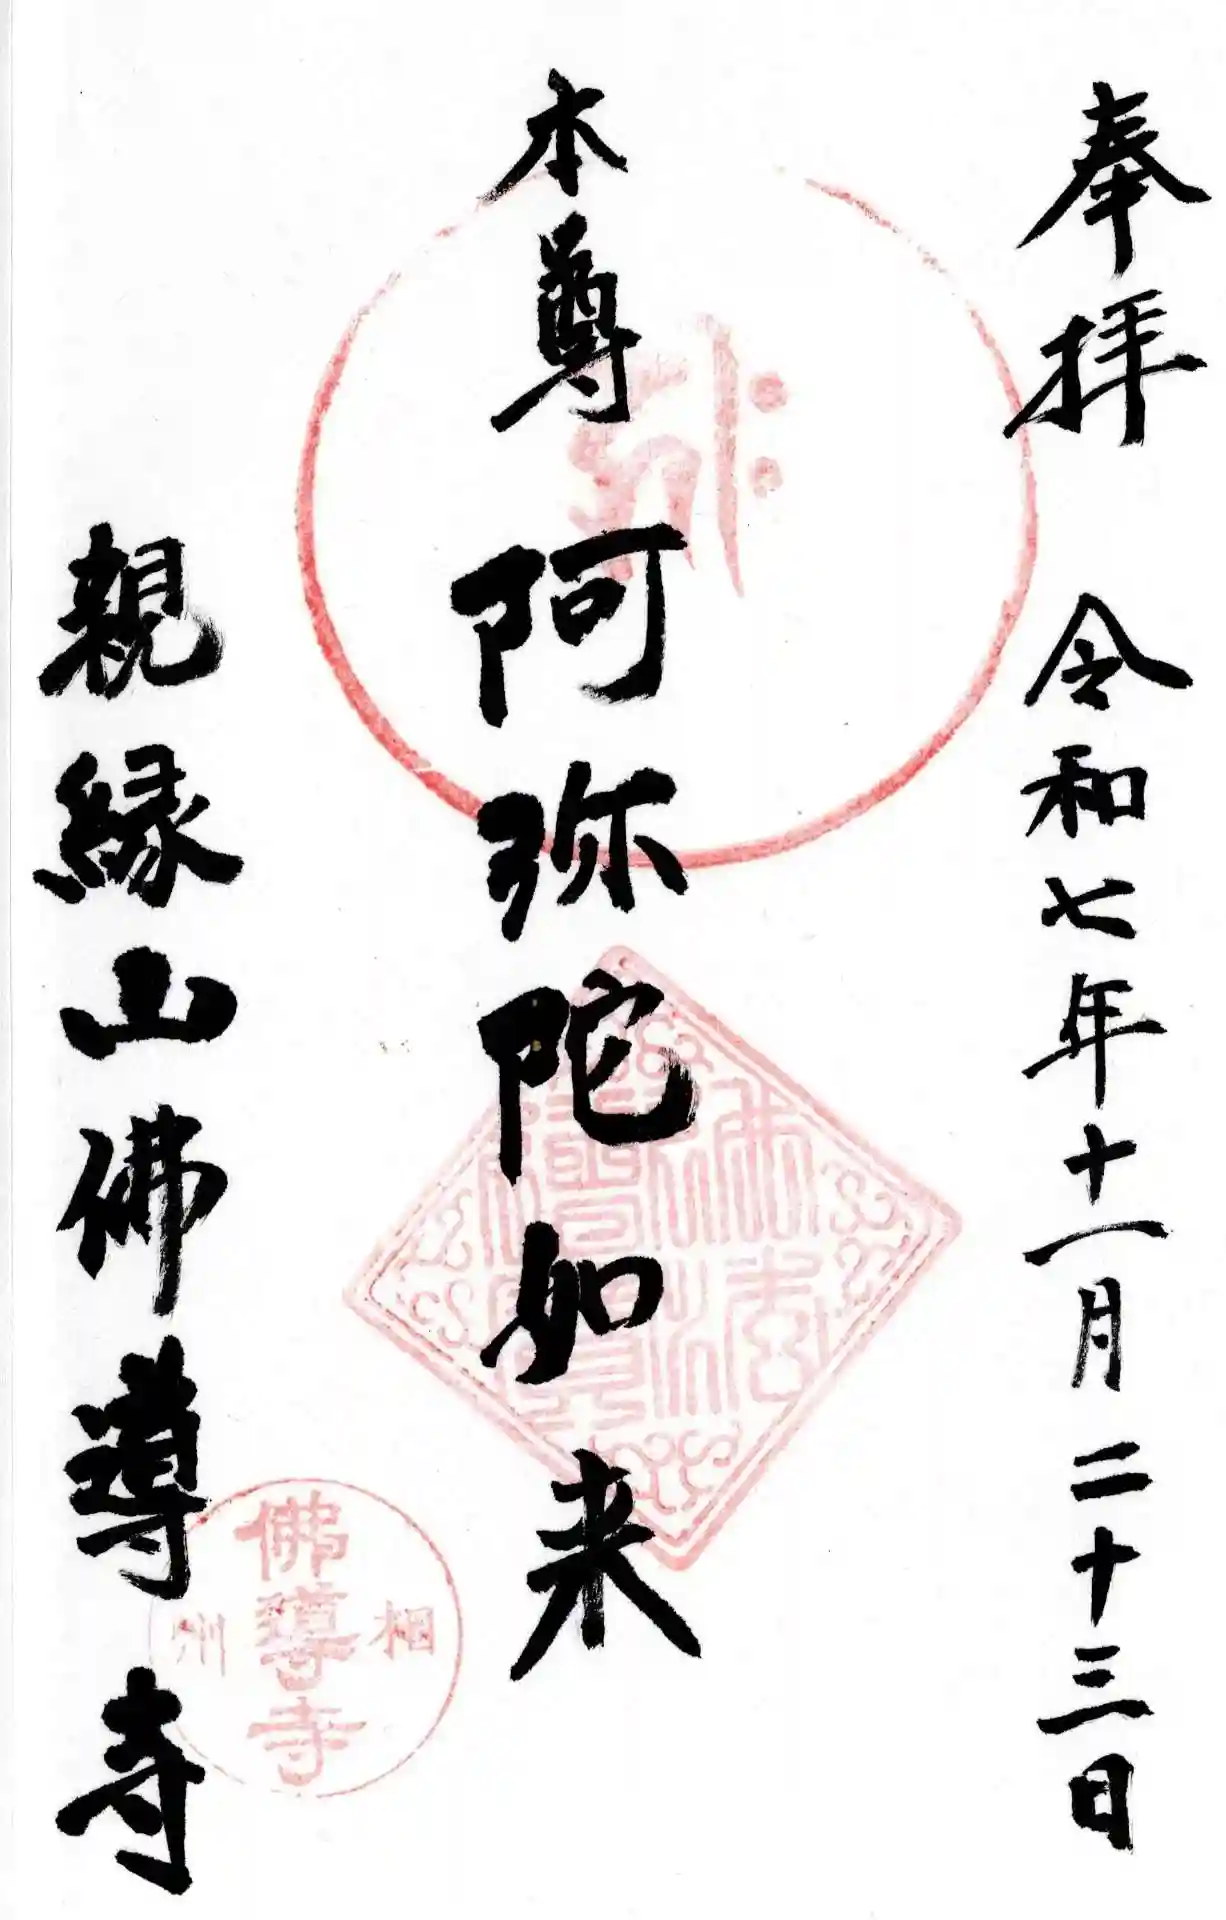 奉拝　令和七年十一月二十三日
本尊　阿弥陀如来
親縁山佛導寺
相州
佛導寺